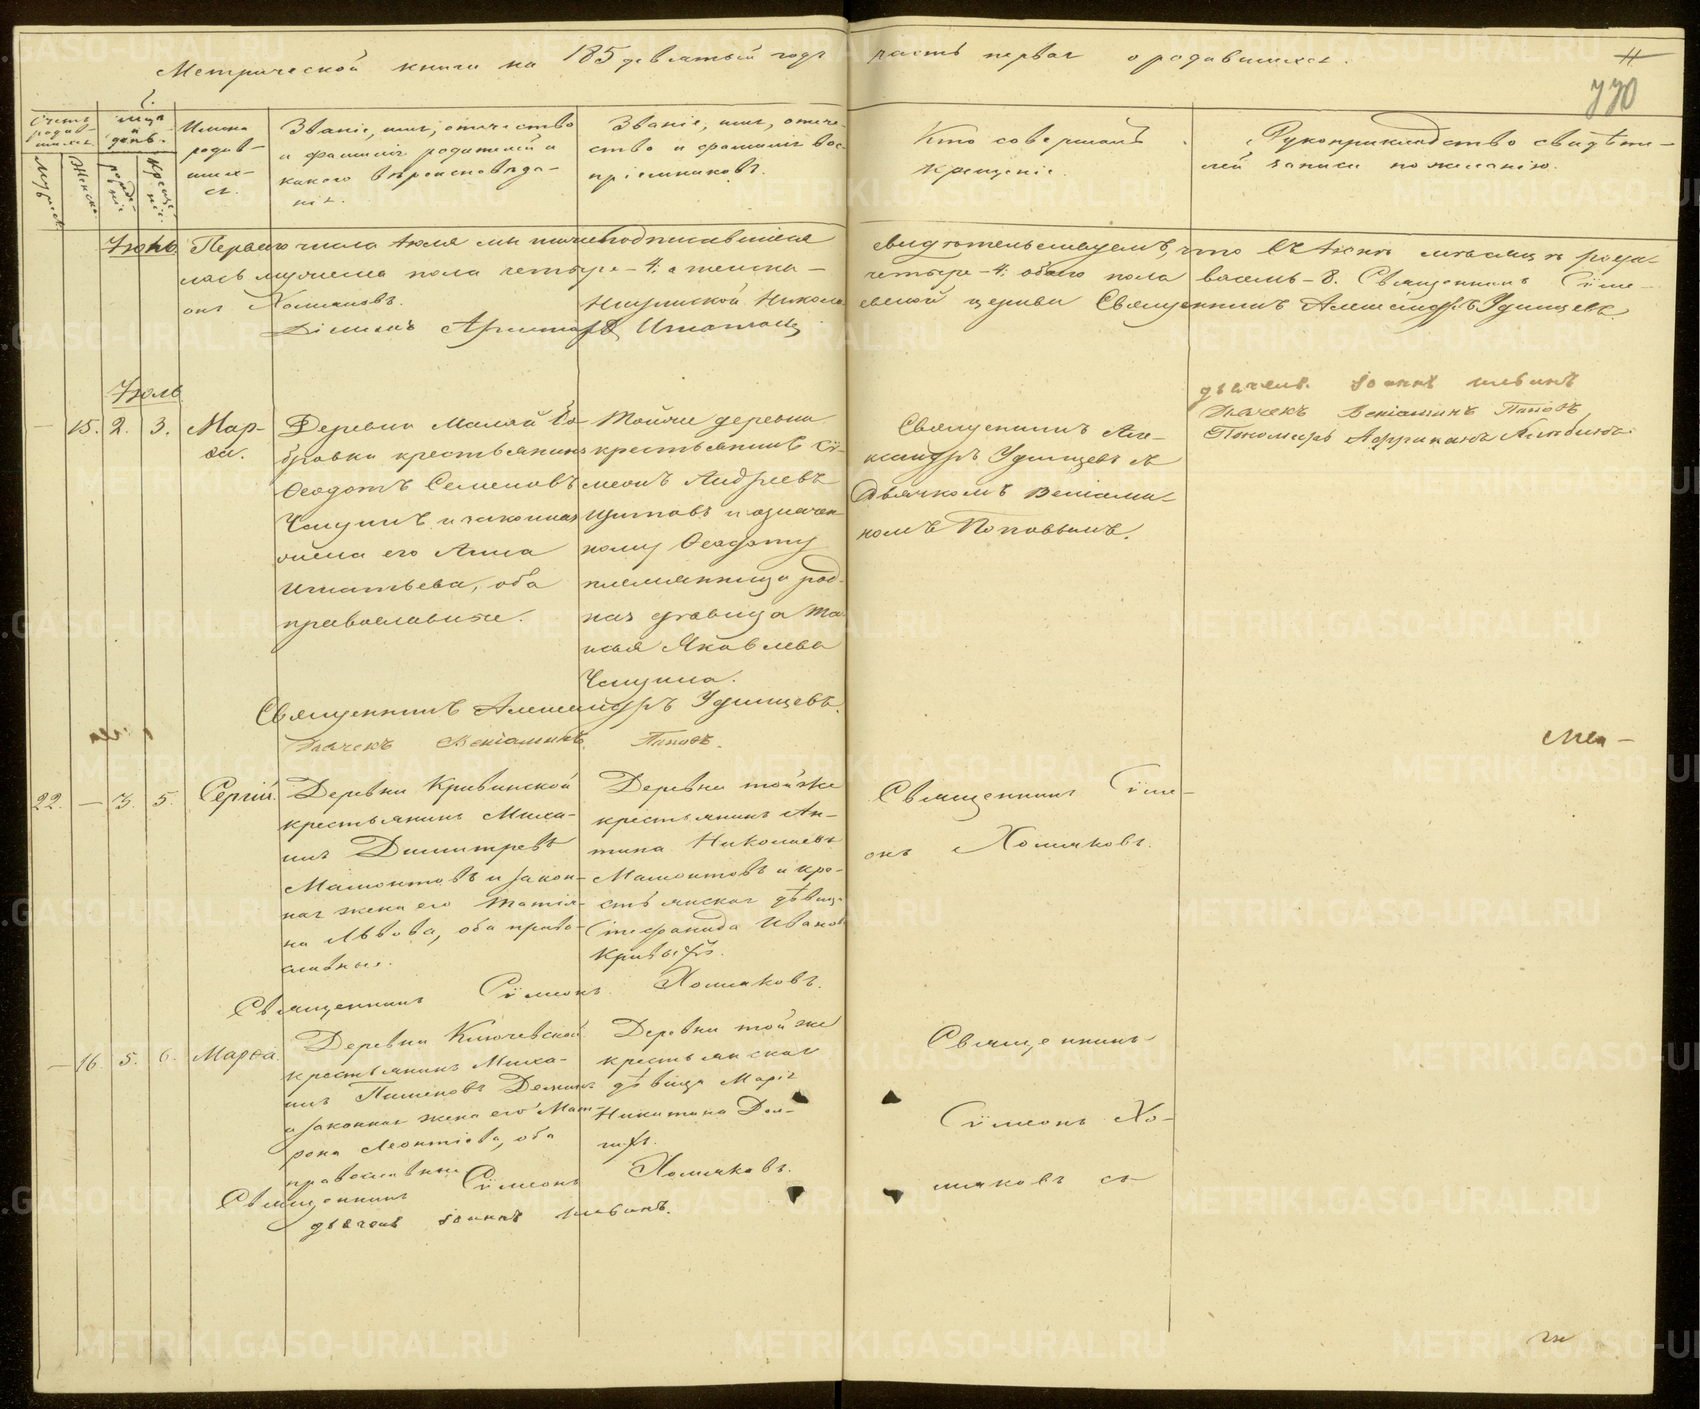 Метрической книги на 185 девятый годъ часть первая о родившихся.
11
770
Счетъ родив-
шихся.
Мужеска
Женска
Мца и
день.
рожде-
нія
креще-
нія.
Имена
родив-
ших-
ся.
Званіе, имя, отчество
и фамилія родителей и
какого вѣроисповѣда-
нія.
Званіе, имя, отче-
ство и фамилія вос-
пріемниковъ.
Кто совершалъ
крещеніе.
Рукоприкладство свидѣте-
лей записи по желанію.
Іюнь. Перваго числа Іюля мы нижеподписавшіеся свидѣтельствуемъ, что въ Іюнѣ мѣсяцѣ роди-
лось мужеска пола четыре - 4. а женска - четыре - 4. обоего пола восемь - 8. Священникъ Сѵме-
онъ Хомяковъ. Николаевской церкви Священникъ Александръ Удинцевъ.
Діаконъ
Іюль
діаконъ Іоаннъ
Дьячекъ Веніаминъ Поповъ
Пономарь Африканъ
15. 2. 3. Мар-
ѳа.
Деревни Малой Бо-
бровки крестьянинъ
Ѳеодотъ Семеновъ
Чащинъ и законная
жена его Анна
Игнатьева, оба
православные.
Тойже деревни
крестьянинъ Сѵ-
меонъ Андреевъ
Щитовъ и означен-
ному Ѳеодоту
племянница род-
ная дѣвица Та-
исья Яковлева
Чащина.
Священникъ Але-
ксандръ Удинцевъ съ
Дьячкомъ Веніами-
номъ Поповымъ.
Священникъ Александръ Удинцевъ.
Дьячекъ Веніаминъ Поповъ.
22. — 3. 5. Сергій.
Деревни Кривинской
крестьянинъ Миха-
илъ Димитревъ
Мамонтовъ и закон-
ная жена его Татія-
на Львова, оба право-
славные.
Деревни тойже
крестьянинъ Ан-
типа Николаевъ
Мамонтовъ и кре-
стьянская дѣвица
Стефанида Иванова
Кривыхъ.
Священникъ Сѵме-
онъ Хомяковъ.
Священникъ Сѵмеонъ Хомяковъ.
— 16. 5. 6. Марѳа.
Деревни Ключевской
крестьянинъ Миха-
илъ Пименовъ
и законная жена его Мат-
рона Леонтіева, оба
православные
Деревни тойже
крестьянская
дѣвица Марія
Никитина Дол-
гихъ.
Священникъ
Сѵмеонъ Хо-
мяковъ съ
Священникъ Сѵмеонъ Хомяковъ.
діаконъ Іоаннъ
METRIKI.GASO-URAL.RU